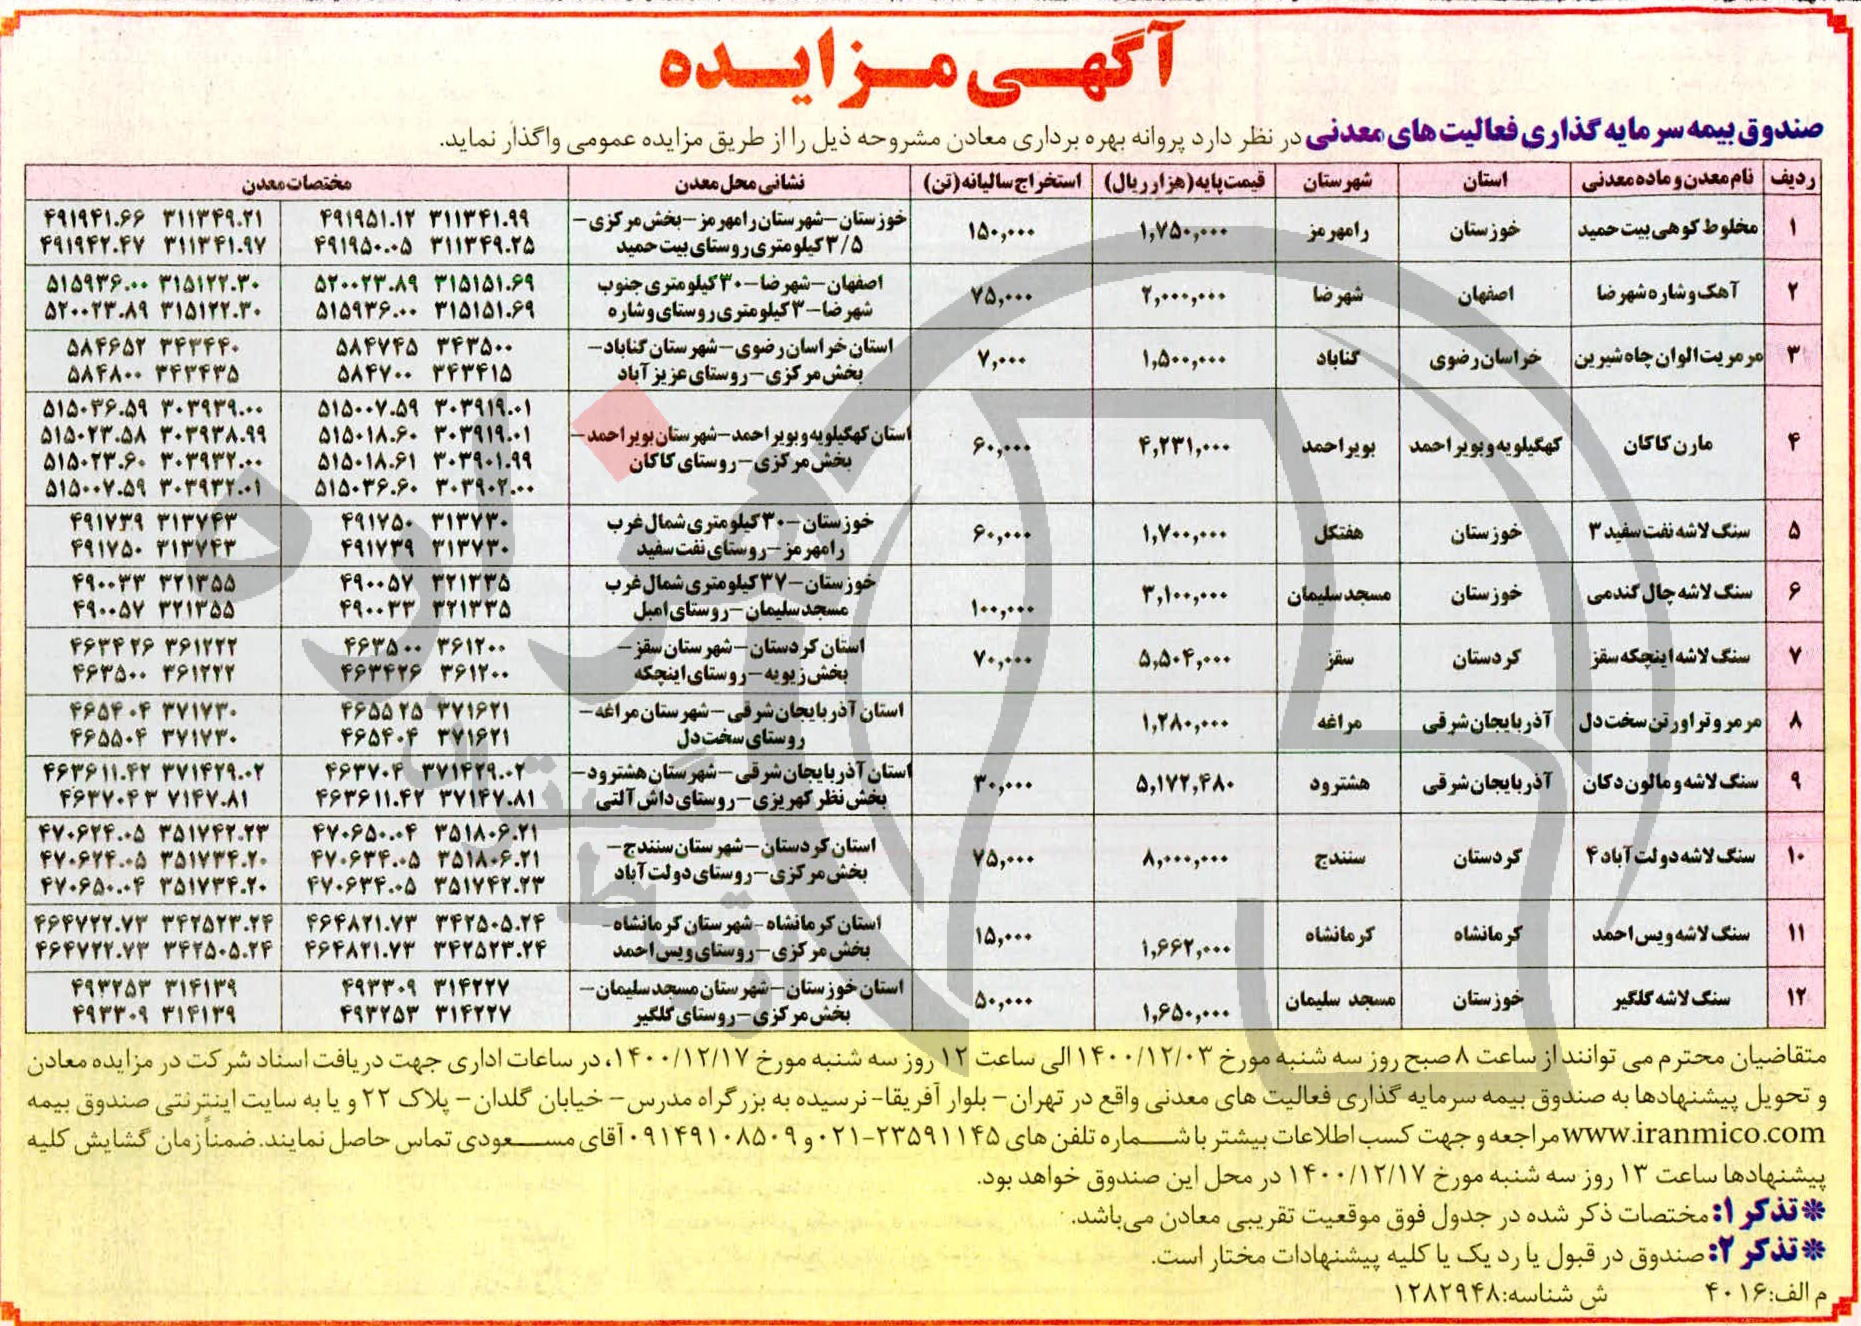 آگهی مزایده
صندوق بیمه سرمایه گذاری فعالیت های معدنی در نظر دارد پروانه بهره برداری معادن مشروحه ذیل را از طریق مزایده عمومی واگذار نماید.
ردیف نام معدن و ماده معدنی استان شهرستان قیمت پایه (هزار ریال) استخراج سالیانه (تن) نشانی محل معدن مختصات معدن
۱ مخلوط کوهی بیت حمید خوزستان رامهرمز ۱,۷۵۰,۰۰۰ ۱۵۰,۰۰۰ خوزستان – شهرستان رامهرمز – بخش مرکزی – ۳/۵ کیلومتری روستای بیت حمید
۴۹۱۹۵۱.۱۲ ۳۱۱۳۴۱.۹۹ ۴۹۱۹۴۱.۶۶ ۳۱۱۳۴۹.۲۱
۴۹۱۹۵۰.۰۵ ۳۱۱۳۴۹.۲۵ ۴۹۱۹۴۲.۴۷ ۳۱۱۳۴۱.۹۷
۲ آهک وشاره شهرضا اصفهان شهرضا ۲,۰۰۰,۰۰۰ ۷۵,۰۰۰ اصفهان – شهرضا – ۳۰ کیلومتری جنوب شهرضا – ۳ کیلومتری روستای وشاره
۵۲۰۰۲۳.۸۹ ۳۱۵۱۵۱.۶۹ ۵۱۵۹۳۶.۰۰ ۳۱۵۱۲۲.۳۰
۵۱۵۹۳۶.۰۰ ۳۱۵۱۵۱.۶۹ ۵۲۰۰۲۳.۸۹ ۳۱۵۱۲۲.۳۰
۳ مرمریت الوان چاه شیرین خراسان رضوی گناباد ۱,۵۰۰,۰۰۰ ۷,۰۰۰ استان خراسان رضوی – شهرستان گناباد – بخش مرکزی – روستای عزیز آباد
۵۸۴۷۴۵ ۳۴۳۵۰۰ ۵۸۴۶۵۲ ۳۴۳۴۴۰
۵۸۴۷۰۰ ۳۴۳۴۱۵ ۵۸۴۸۰۰ ۳۴۳۴۳۵
۴ مارن کاکان کهگیلویه و بویر احمد بویر احمد ۴,۲۳۱,۰۰۰ ۶۰,۰۰۰ استان کهگیلویه و بویر احمد – شهرستان بویر احمد – بخش مرکزی – روستای کاکان
۵۱۵۰۰۷.۵۹ ۳۰۳۹۱۹.۰۱ ۵۱۵۰۳۶.۵۹ ۳۰۳۹۳۹.۰۰
۵۱۵۰۱۸.۶۰ ۳۰۳۹۱۹.۰۱ ۵۱۵۰۲۳.۵۸ ۳۰۳۹۳۸.۹۹
۵۱۵۰۱۸.۶۱ ۳۰۳۹۰۱.۹۹ ۵۱۵۰۲۳.۶۰ ۳۰۳۹۳۲.۰۰
۵۱۵۰۳۶.۶۰ ۳۰۳۹۰۲.۰۰ ۵۱۵۰۰۷.۵۹ ۳۰۳۹۳۲.۰۱
۵ سنگ لاشه نفت سفید ۳ خوزستان هفتکل ۱,۷۰۰,۰۰۰ ۶۰,۰۰۰ خوزستان – ۳۰ کیلومتری شمال غرب رامهرمز – روستای نفت سفید
۴۹۱۷۵۰ ۳۱۳۷۳۰ ۴۹۱۷۳۹ ۳۱۳۷۴۳
۴۹۱۷۳۹ ۳۱۳۷۳۰ ۴۹۱۷۵۰ ۳۱۳۷۴۳
۶ سنگ لاشه چال گندمی خوزستان مسجد سلیمان ۳,۱۰۰,۰۰۰ ۱۰۰,۰۰۰ خوزستان – ۳۷ کیلومتری شمال غرب مسجد سلیمان – روستای امبل
۴۹۰۰۵۷ ۳۲۱۳۳۵ ۴۹۰۰۳۳ ۳۲۱۳۵۵
۴۹۰۰۳۳ ۳۲۱۳۳۵ ۴۹۰۰۵۷ ۳۲۱۳۵۵
۷ سنگ لاشه اینچکه سقز کردستان سقز ۵,۵۰۴,۰۰۰ ۷۰,۰۰۰ استان کردستان – شهرستان سقز – بخش زیویه – روستای اینچکه
۴۶۳۵۰۰ ۳۶۱۲۰۰ ۴۶۳۴۲۶ ۳۶۱۲۲۲
۴۶۳۴۲۶ ۳۶۱۲۰۰ ۴۶۳۵۰۰ ۳۶۱۲۲۲
۸ مرمر و تراورتن سخت دل آذربایجان شرقی مراغه ۱,۲۸۰,۰۰۰ استان آذربایجان شرقی – شهرستان مراغه – روستای سخت دل
۴۶۵۵۲۵ ۳۷۱۶۲۱ ۴۶۵۴۰۴ ۳۷۱۷۳۰
۴۶۵۴۰۴ ۳۷۱۶۲۱ ۴۶۵۵۰۴ ۳۷۱۷۳۰
۹ سنگ لاشه و مالون دکان آذربایجان شرقی هشترود ۵,۱۷۲,۴۸۰ ۳۰,۰۰۰ استان آذربایجان شرقی – شهرستان هشترود – بخش نظر کهریزی – روستای داش آلتی
۴۶۳۷۰۴ ۳۷۱۴۲۹.۰۲ ۴۶۳۶۱۱.۴۲ ۳۷۱۴۲۹.۰۲
۴۶۳۶۱۱.۴۲ ۳۷۱۴۷.۸۱ ۴۶۳۷۰۴۳ ۷۱۴۷.۸۱
۱۰ سنگ لاشه دولت آباد ۴ کردستان سنندج ۸,۰۰۰,۰۰۰ ۷۵,۰۰۰ استان کردستان – شهرستان سنندج – بخش مرکزی – روستای دولت آباد
۴۷۰۶۵۰.۰۴ ۳۵۱۸۰۶.۲۱ ۴۷۰۶۲۴.۰۵ ۳۵۱۷۴۲.۲۳
۴۷۰۶۳۴.۰۵ ۳۵۱۸۰۶.۲۱ ۴۷۰۶۲۴.۰۵ ۳۵۱۷۳۴.۲۰
۴۷۰۶۳۴.۰۵ ۳۵۱۷۴۲.۲۳ ۴۷۰۶۵۰.۰۴ ۳۵۱۷۳۴.۲۰
۱۱ سنگ لاشه ویس احمد کرمانشاه کرمانشاه ۱,۶۶۲,۰۰۰ ۱۵,۰۰۰ استان کرمانشاه – شهرستان کرمانشاه – بخش مرکزی – روستای ویس احمد
۴۶۴۸۲۱.۷۳ ۳۴۲۵۰۵.۲۴ ۴۶۴۷۲۲.۷۳ ۳۴۲۵۲۳.۲۴
۴۶۴۸۲۱.۷۳ ۳۴۲۵۲۳.۲۴ ۴۶۴۷۲۲.۷۳ ۳۴۲۵۰۵.۲۴
۱۲ سنگ لاشه گلگیر خوزستان مسجد سلیمان ۱,۶۵۰,۰۰۰ ۵۰,۰۰۰ استان خوزستان – شهرستان مسجد سلیمان – بخش مرکزی – روستای گلگیر
۴۹۳۳۰۹ ۳۱۴۲۲۷ ۴۹۳۲۵۳ ۳۱۴۱۳۹
۴۹۳۲۵۳ ۳۱۴۲۲۷ ۴۹۳۳۰۹ ۳۱۴۱۳۹
متقاضیان محترم می توانند از ساعت ۸ صبح روز سه شنبه مورخ ۱۴۰۰/۱۲/۰۳ الی ساعت ۱۲ روز سه شنبه مورخ ۱۴۰۰/۱۲/۱۷، در ساعات اداری جهت دریافت اسناد شرکت در مزایده معادن
و تحویل پیشنهادها به صندوق بیمه سرمایه گذاری فعالیت های معدنی واقع در تهران- بلوار آفریقا- نرسیده به بزرگراه مدرس- خیابان گلدان- پلاک ۲۲ و یا به سایت اینترنتی صندوق بیمه
www.iranmico.com مراجعه و جهت کسب اطلاعات بیشتر با شماره تلفن های ۲۳۵۹۱۱۴۵-۰۲۱ و ۰۹۱۴۹۱۰۸۵۰۹ آقای مسعودی تماس حاصل نمایند. ضمناً زمان گشایش کلیه
پیشنهادها ساعت ۱۳ روز سه شنبه مورخ ۱۴۰۰/۱۲/۱۷ در محل این صندوق خواهد بود.
* تذکر ۱: مختصات ذکر شده در جدول فوق موقعیت تقریبی معادن می‌باشد.
* تذکر ۲: صندوق در قبول یا رد یک یا کلیه پیشنهادات مختار است.
م الف: ۴۰۱۶ ش شناسه: ۱۲۸۲۹۴۸